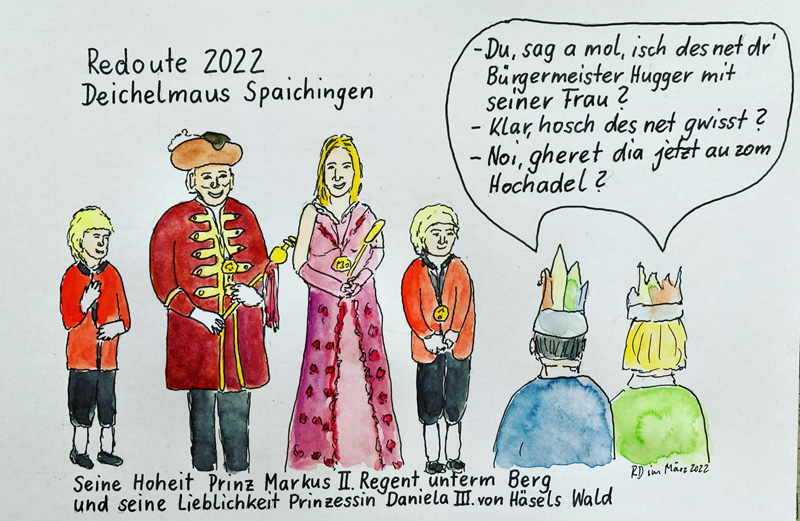 Redoute 2022
Deichelmaus Spaichingen
- Du, sag a mol, isch des net dr'
Bürgermeister Hugger mit
seiner Frau?
- Klar, hosch des net gwisst?
- Noi, gheret dia jetzt au zom
Hochadel?
Seine Hoheit Prinz Markus II. Regent unterm Berg
und seine Lieblichkeit Prinzessin Daniela III. von Häsels Wald
RD im März 2022